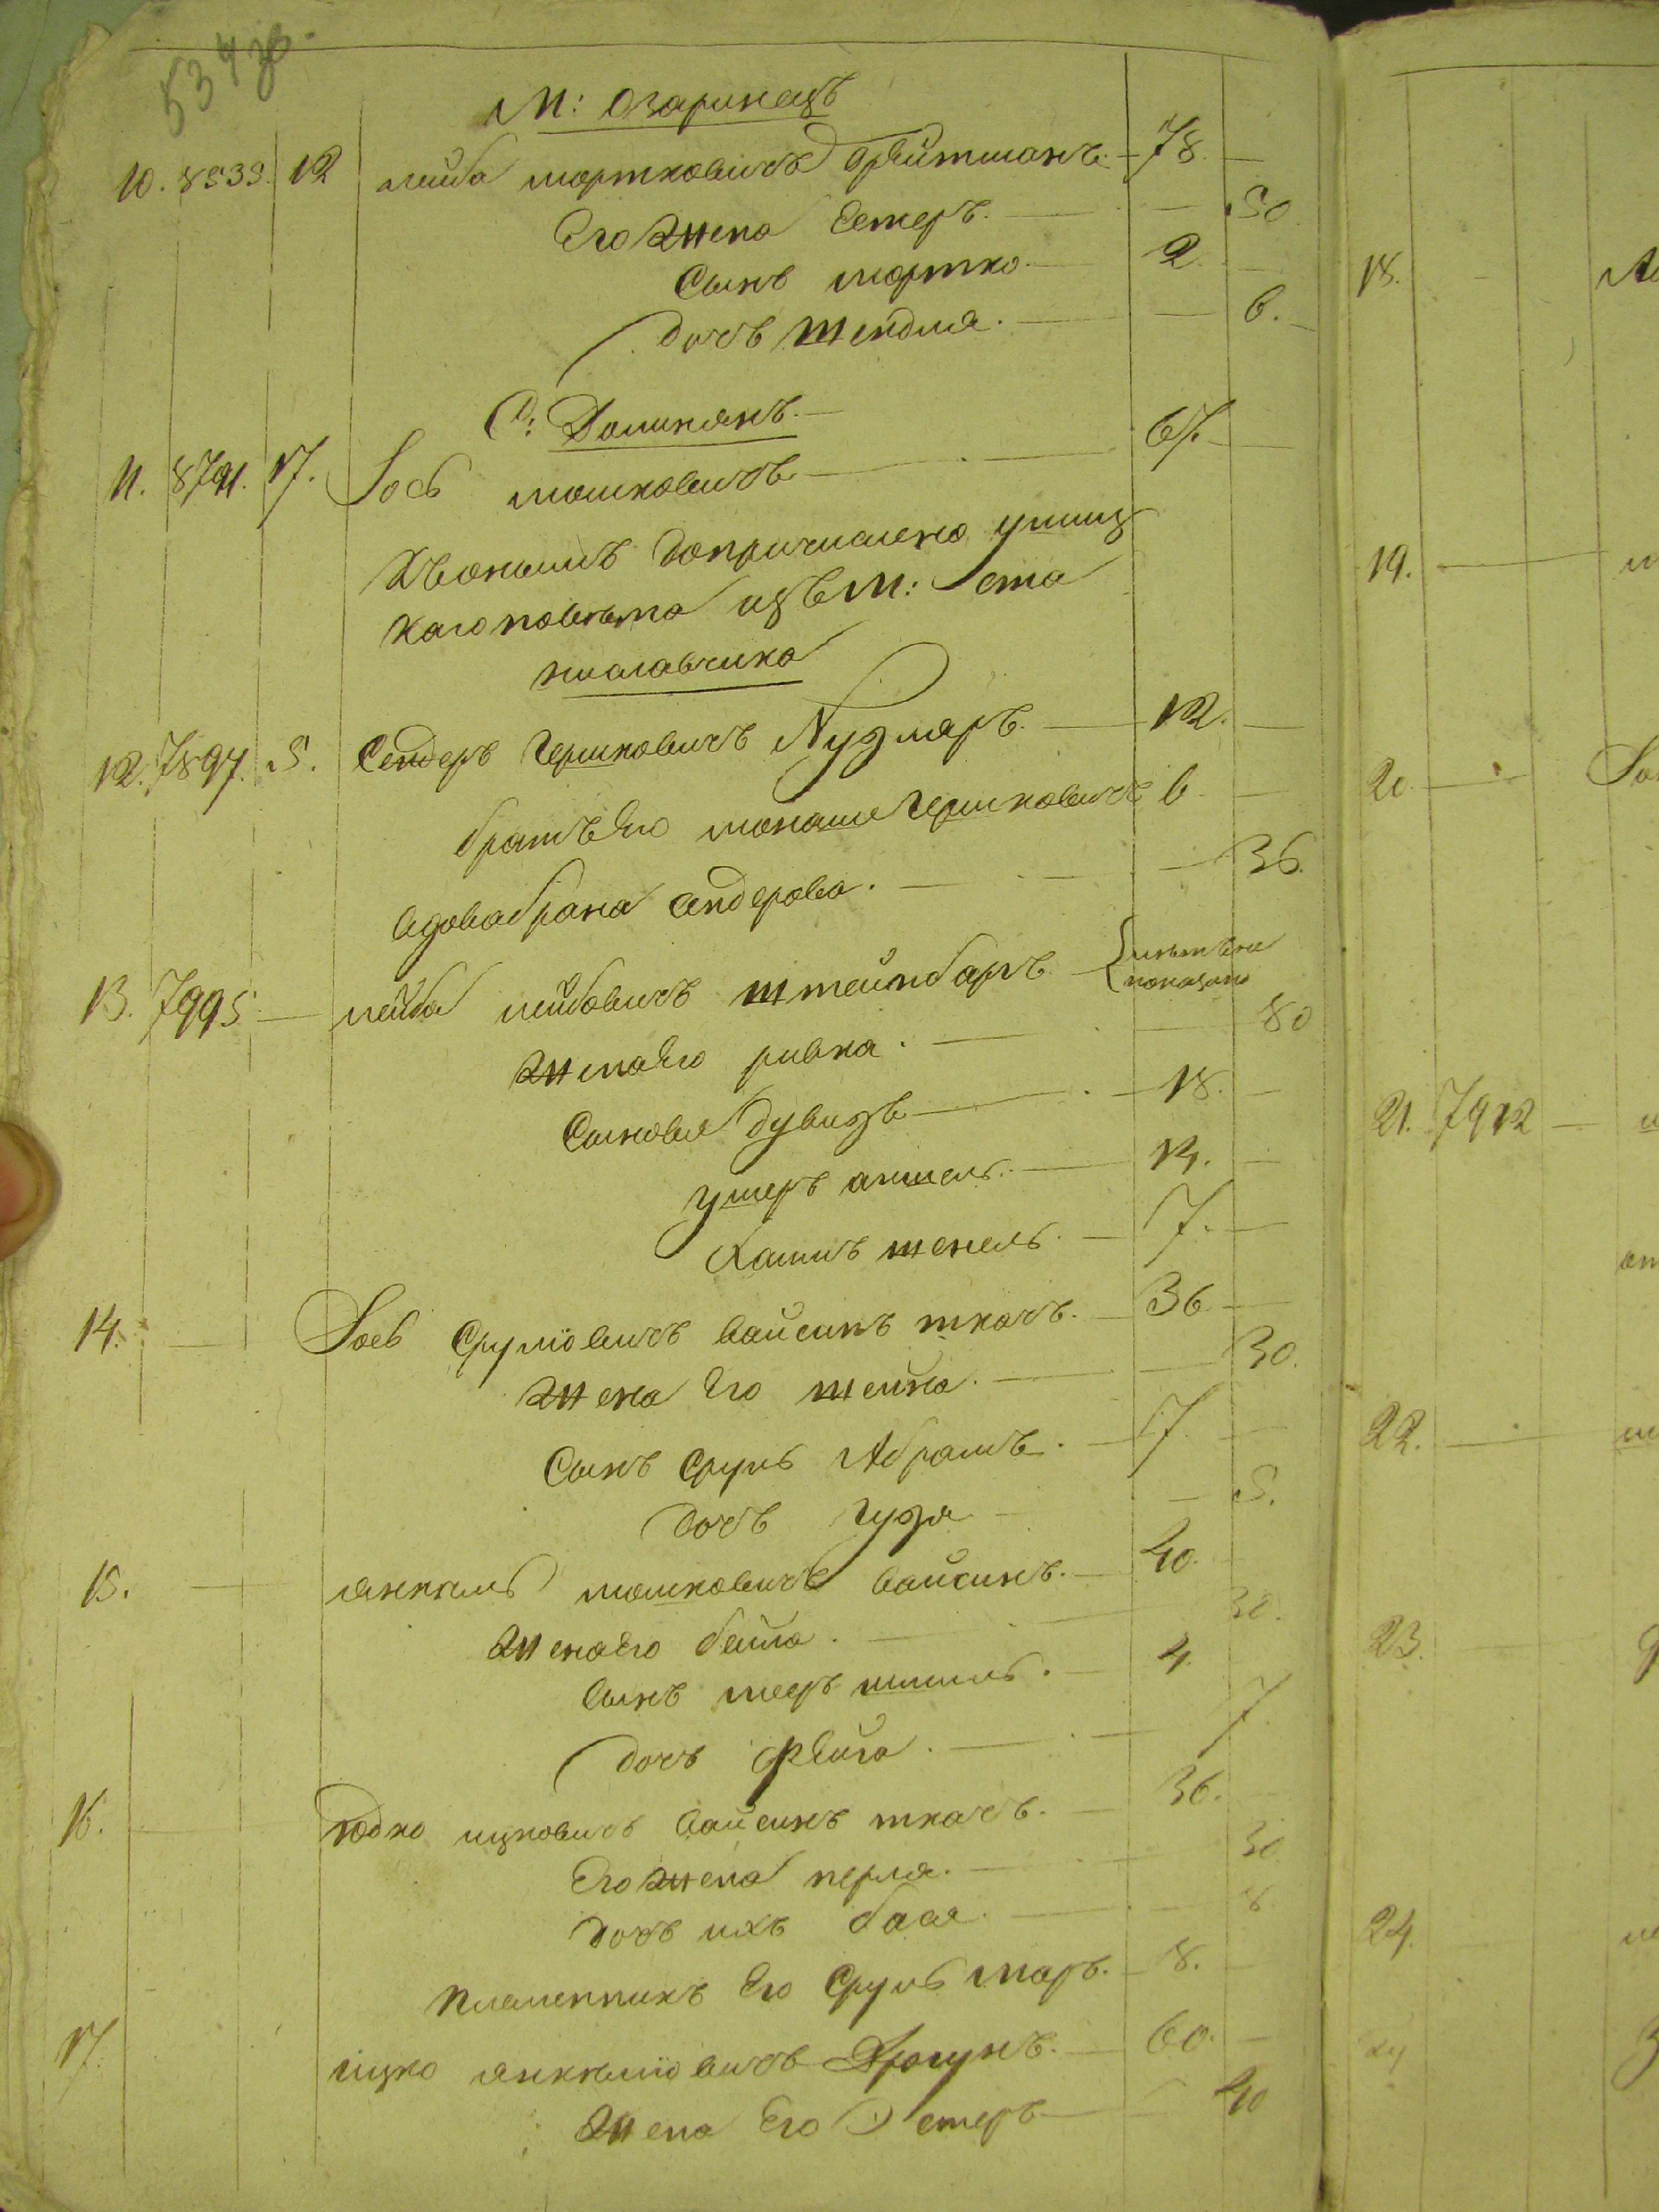 534 зв.
М: Озаринецъ
10. 8539. 12 лейба мортковичъ Фрейтманъ. 78. —
Его Жена Естеръ. — — 50
Сынъ мортко. — 2. —
дочъ шендля. — — 6.
С: Долинянъ. —
11. 8791. 17. Іось мошковичъ — 67. —
каго повѣта изъ М:
12. 7897. 5. Сендеръ Гершковичъ — 12. —
братъ Его монаше Гершковичъ 6. —
вдова брана сендерова. — — 36.
13. 7995. — лейба лейбовичъ штейнбаръ
показано
жена Его ривка. — — 80
Сыновья дувидъ — 18. —
ушеръ аншель. — 14. —
Хаимъ шепель. — 7. —
14. — Іось Срулiовичъ вайсинъ ткачъ. — 36 —
жена Его шейна. — — 30.
Сынъ Сруль Абрамъ. — 7. —
дочъ Гудя — 5.
15. — янкель мошковичъ вайсинъ. — 40. —
жена Его бейла. — 30.
Сынъ мееръ шмиль. — 4.
дочъ фейга. — — 7
16. — юдко ицковичъ вайсинъ ткачъ. — 36. —
Его жена перля. — 30
дочъ ихъ бася. — — 8
племенникъ Его Сруль маръ. — 8. —
17. ицко янкелiовичъ — 60. —
жена Его Эстеръ — 40
18.
19. —
20. —
21. 7912 —
22. —
23. —
24.